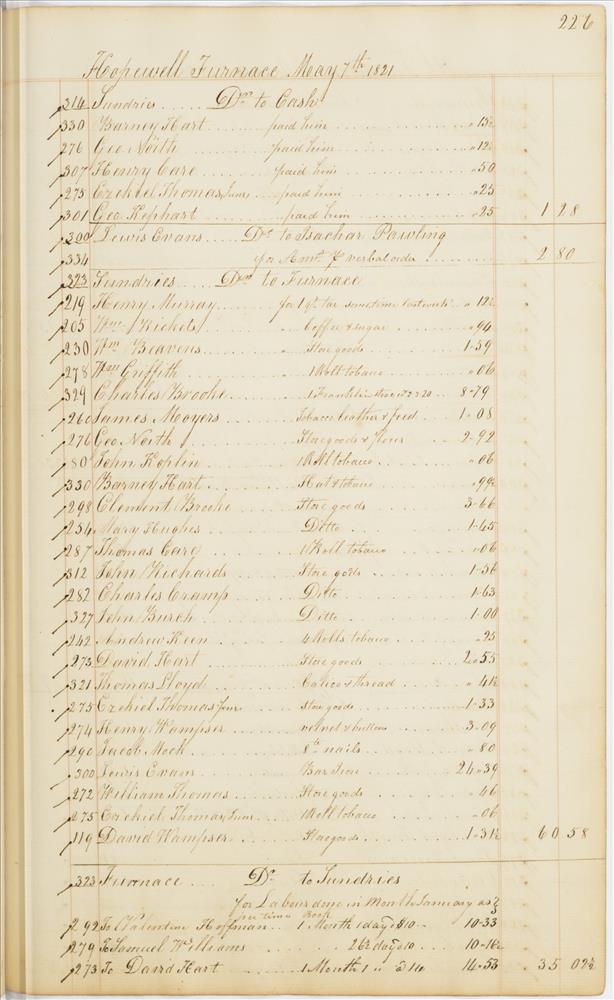 226
Hopewell Furnace May 7th 1821
314 Sundries Drs to Cash
330 Barney Hart paid him " 15½
276 Geo North paid him " 12½
307 Henry Care paid him " 50
275 Ezekiel Thomas Junr paid him " 25
301 Geo Kephart paid him " 25 1 28
300 Lewis Evans Dr to Isachar Pawling
334 for Amt p verbal order 2 80
323 Sundries Drs to Furnace
219 Henry Murray for 1 qt tar sometime last week " 12½
205 Wm Richets Coffee & sugar " 94
230 Wm Beavens Store goods 1-59
278 Wm Griffith 1 Roll tobacco " 06
329 Charles Brooke 1 Franklin stove 8-79
260 James Moyers Tobacco leather & feed 1-08
276 Geo North Store goods & flour 2-92
80 John Keplin 1 Roll tobacco " 06
330 Barney Hart Hat & tobacco " 99½
298 Clement Brooke Store goods 3-66
254 Mary Hughes Ditto 1-45
287 Thomas Care 1 Roll tobacco " 06
312 John Richards Store goods 1-56
282 Charles Cramp Ditto 1-63
327 John Burch Ditto 1-00
242 Andrew Keen 4 Rolls tobacco " 25
273 David Hart Store goods 2-55
321 Thomas Lloyd Calico & thread " 41½
275 Ezekiel Thomas Junr Store goods 1-33
274 Henry Wampser velvet & buttons 3-09
290 Jacob Mock 8 lb nails " 80
300 Lewis Evans Bar Iron 24-39
272 William Thomas Store goods " 46
275 Ezekiel Thomas Junr 1 Roll tobacco " 06
119 David Wampser Store goods 1-31½ 60 58
323 Furnace Dr to Sundries
for Labour done in Month January as
per time Book
292 To Valentine Hoffman 1 Month 1 day @ $10 10-33
279 To Samuel Williams 26½ day @ 10 10-16½
273 To David Hart 1 Month 1 " @ 14 14-53 35 02½